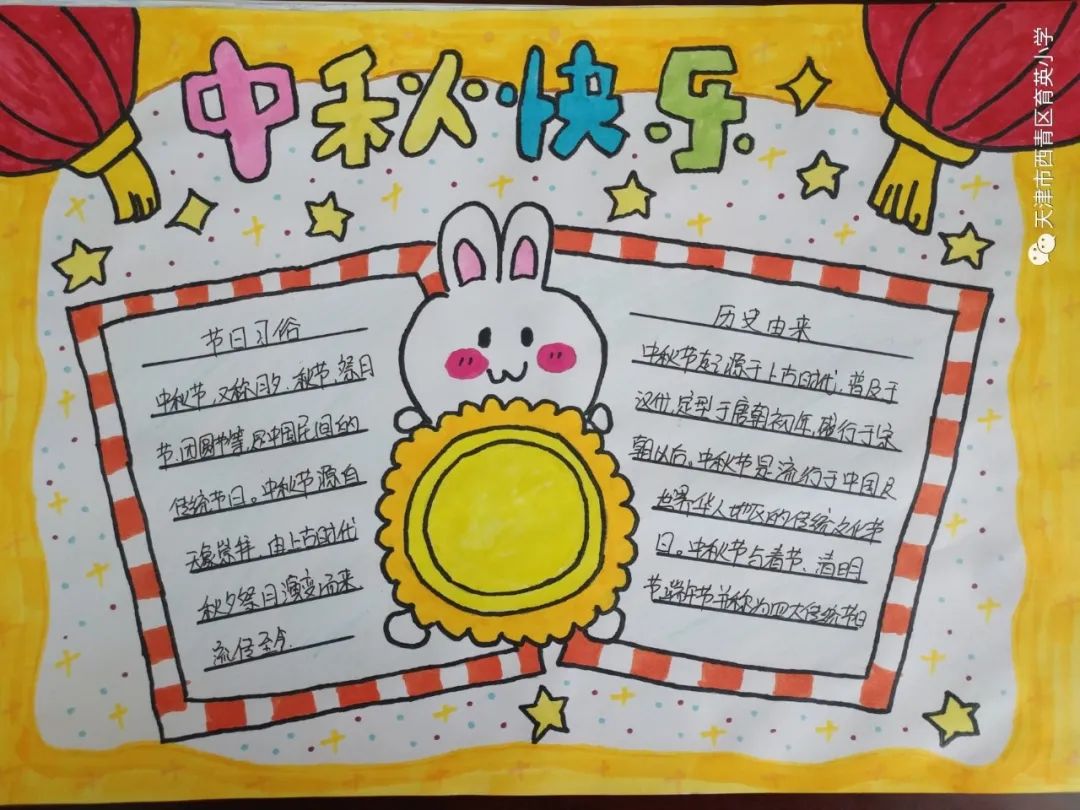 中秋快乐
天津市西青区育英小学
节日习俗
中秋节,又称月夕、秋节、祭月
节、团圆节等,是中国民间的
传统节日。中秋节源自
天象崇拜,由上古时代
秋夕祭月演变而来
流传至今.
历史由来
中秋节起源于上古时代,普及于
汉代,定型于唐朝初年,盛行于宋
朝以后。中秋节是流行于中国及
世界华人地区的传统文化节
日。中秋节与春节、清明
节、端午节并称为四大传统节日